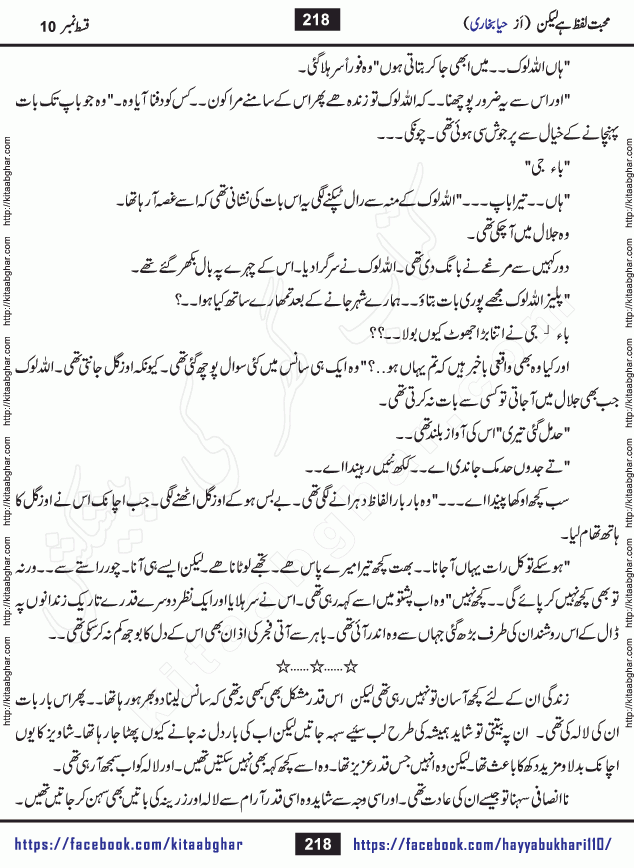 محبت لفظ ہے لیکن (از حیا بخاری) 218 قسط نمبر 10
"ہاں اللہ لوک۔۔میں ابھی جا کر بتاتی ہوں"وہ فوراً سر ہلا گئی۔
"اور اس سے یہ ضرور پوچھنا۔۔کہ اللہ لوک تو زندہ ھے پھر اس کے سامنے مرا کون۔۔کس کو دفنا آیا وہ۔"وہ جو باپ تک بات
پہنچانے کے خیال سے پر جوش سی ہوئی تھی۔چونکی۔۔۔
"باء جی"
"ہاں۔۔تیرا باپ۔۔۔"اللہ لوک کے منہ سے رال ٹپکنے لگی یہ اس بات کی نشانی تھی کہ اسے غصہ آ رہا تھا۔
وہ جلال میں آ چکی تھی۔
دور کہیں سے مرغے نے بانگ دی تھی۔اللہ لوک نے سر گرا دیا۔اس کے چہرے پہ بال بکھر گئے تھے۔
"پلیز اللہ لوک مجھے پوری بات بتاؤ۔۔ہمارے شہر جانے کے بعد تمھارے ساتھ کیا ہوا۔۔؟
باء جی نے اتنا بڑا جھوٹ کیوں بولا۔۔؟؟
اور کیا وہ بھی واقعی با خبر ہیں کہ تم یہاں ہو..؟"وہ ایک ہی سانس میں کئی سوال پوچھ گئی تھی۔کیونکہ اوزگل جانتی تھی۔اللہ لوک
جب بھی جلال میں آ جاتی تو کسی سے بات نہ کرتی تھی۔
"حد مل گئی تیری"اس کی آواز بلند تھی۔۔
"تے جدوں حد مک جاندی اے۔۔لکھ نئیں رہیندا اے۔۔
سب کچھ اوکھا پیندا اے۔۔۔"وہ بار بار الفاظ دہرانے لگی تھی۔بے بس ہو کے اوزگل اٹھنے لگی۔جب اچانک اس نے اوزگل کا
ہاتھ تھام لیا۔
"ہو سکے تو کل رات یہاں آ جانا۔۔بھت کچھ تیرا میرے پاس ھے۔تجھے لوٹانا ھے۔لیکن ایسے ہی آنا۔چور راستے سے۔۔ورنہ
تو بھی کچھ نہیں کر پائے گی۔۔کچھ نہیں"وہ اب پشتو میں اسے کہہ رہی تھی۔اس نے سر ہلایا اور ایک نظر دوسرے قدرے تاریک زندانوں پہ
ڈال کے اس روشندان کی طرف بڑھ گئی جہاں سے وہ اندر آئی تھی۔باہر سے آتی فجر کی اذان بھی اس کے دل کا بوجھ کم نہ کر سکی تھی۔۔
☆……☆……☆
زندگی ان کے لئے کچھ آسان تو نہیں رہی تھی لیکن اس قدر مشکل بھی کبھی نہ تھی کہ سانس لینا دوبھر ہو رہا تھا۔۔پھر اس بار بات
ان کی لالہ کی تھی۔ان پہ بیتتی تو شاید ہمیشہ کی طرح لب سیئے سہہ جاتیں لیکن اب کی بار دل نہ جانے کیوں پھٹا جا رہا تھا۔شاویز کا یوں
اچانک بدلاو مزید دکھ کا باعث تھا۔لیکن وہ انہیں جس قدر عزیز تھا۔وہ اسے کچھ کہہ بھی نہیں سکتیں تھیں۔اور لالہ کو اب سمجھ آ رہی تھی۔
نا انصافی سہنا تو جیسے ان کی عادت تھی۔اور اسی وجہ سے شاید وہ اسی قدر آرام سے لالہ اور زرینہ کی باتیں بھی سہن کر جاتیں تھیں۔
https://facebook.com/kitaabghar 218 https://facebook.com/hayyabukhari110/
http://kitaabghar.com http://kitaabghar.com http://kitaabghar.com http://kitaabghar.com http://kitaabghar.com http://kitaabghar.com
http://kitaabghar.com http://kitaabghar.com http://kitaabghar.com http://kitaabghar.com http://kitaabghar.com http://kitaabghar.com
کتاب گھر کی پیشکش
kitaabghar.com